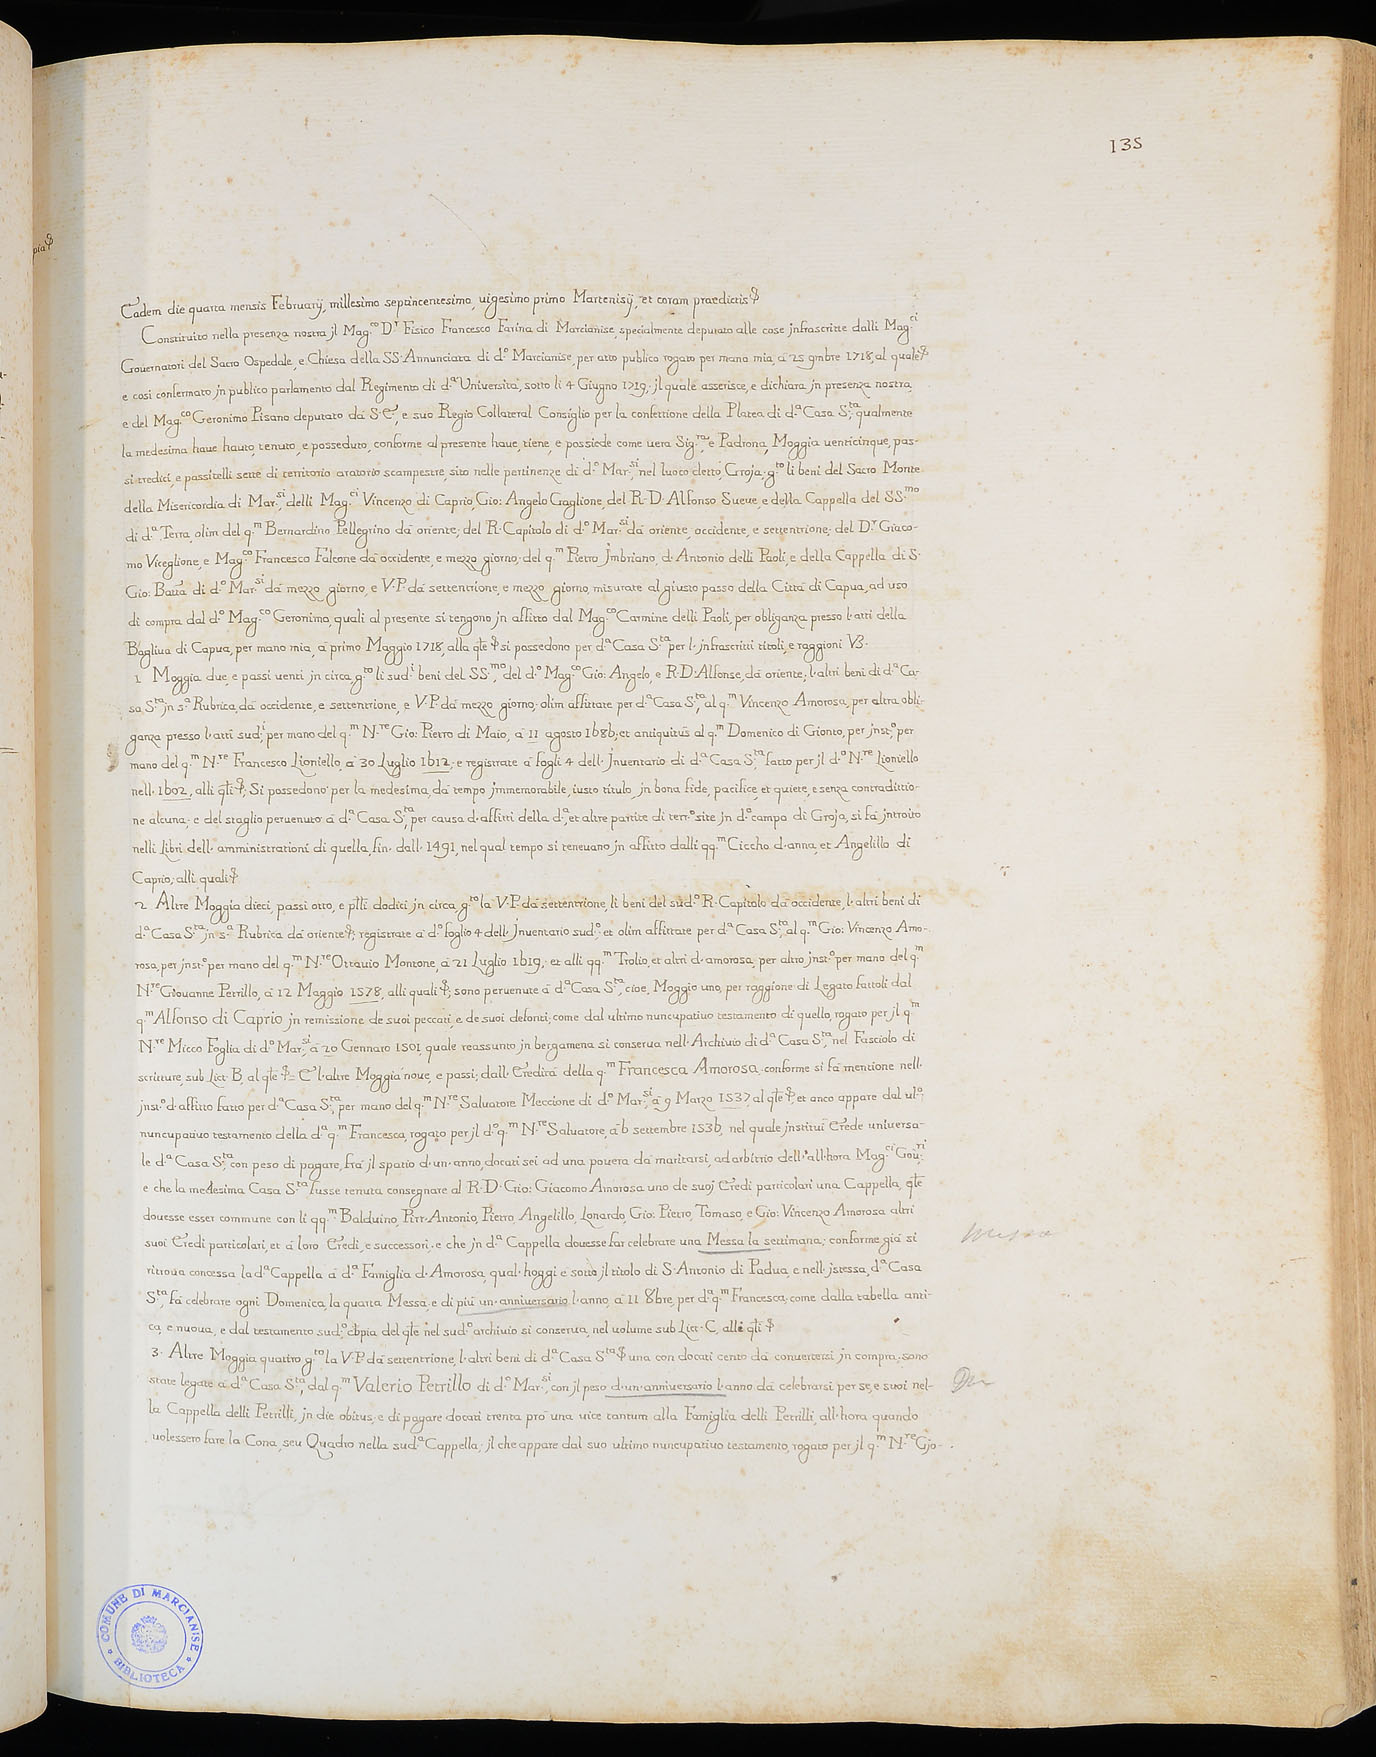 135
pia
Eadem die quarta mensis Februarij, millesimo septincentesimo, uigesimo primo Martenisij, et coram praedictis &
Constituito nella presenza nostra jl Mag.co D.r Fisico Francesco Farina di Marcianise, specialmente deputato alle cose jnfrascritte dalli Mag.ci
Gouernatori del Sacro Ospedale, e Chiesa della SS. Annunciata di d.o Marcianise, per atto publico rogato per mano mia, à 25 9mbre 1718, al quale &
e così confermato jn publico parlamento dal Regimento di d.a Università, sotto li 4 Giugno 1719, jl quale asserisce, e dichiara jn presenza nostra,
e del Mag.co Geronimo Pisano deputato da S. E., e suo Regio Collateral Consiglio per la confettione della Platea di d.a Casa S.ta, qualmente
la medesima haue hauto, tenuto, e posseduto, conforme al presente haue, tiene, e possiede come uera Sig.ra, e Padrona, Moggia uenticinque, pas-
si tredici, e passitelli sette di territorio aratorio scampestre, sito nelle pertinenze di d.o Mar.si, nel luoco detto, Groja, g.to li beni del Sacro Monte
della Misericordia di Mar.si, delli Mag.ci Vincenzo di Caprio, Gio: Angelo Gaglione, del R. D. Alfonso Sueue, e della Cappella del SS.mo
di d.a Terra, olim del q.m Bernardino Pellegrino da oriente; del R. Capitolo di d.o Mar.si da oriente, occidente, e settentrione; del D.r Giaco-
mo Viceglione, e Mag.co Francesco Falcone da occidente, e mezzo giorno, del q.m Pietro Jmbriano, d. Antonio delli Paoli, e della Cappella di S.
Gio: Batta di d.o Mar.si da mezzo giorno, e V.P. da settentrione, e mezzo giorno, misurate al giusto passo della Città di Capua, ad uso
di compra dal d.o Mag.co Geronimo, quali al presente si tengono jn affitto dal Mag.co Carmine delli Paoli, per obliganza presso l'atti della
Bagliua di Capua, per mano mia, à primo Maggio 1718, alla qle & si possedono per d.a Casa S.ta per l'infrascritti titoli, e raggioni V3.
1. Moggia due, e passi uenti jn circa, g.to li sud.i beni del SS.mo, del d.o Mag.co Gio: Angelo, e R. D. Alfonse, da oriente; l'altri beni di d.a Ca-
sa S.ta jn s.a Rubrica, da occidente, e settentrione, e V.P. da mezzo giorno; olim affittate per d.a Casa S.ta, al q.m Vincenzo Amorosa, per altra obli-
ganza presso l'atti sud.i, per mano del q.m N.re Gio: Pietro di Maio, à 11 agosto 1686; et antiquitùs al q.m Domenico di Gionto, per jnst.o per
mano del q.m N.re Francesco Lioniello, à 30 Luglio 1612; e registrate à fogli 4 dell'Jnuentario di d.a Casa S.ta, fatto per jl d.o N.re Lioniello
nell' 1602, alli qlti &; Si possedono per la medesima, da tempo jmmemorabile, iusto titulo, jn bona fide, pacifice, et quiete, e senza contradittio-
ne alcuna; e del staglio peruenuto à d.a Casa S.ta, per causa d'affitti della d.a, et altre partite di terr.o site jn d.o campo di Groja, si fà jntroito
nelli Libri dell'amministrationi di quella, fin' dall' 1491, nel qual tempo si teneuano jn affitto dalli qq.m Ciccho d'anna, et Angelillo di
Caprio; alli quali &
2. Altre Moggia dieci, passi otto, e ptlli dodici jn circa, g.to la V.P. da settentrione, li beni del sud.o R. Capitolo da occidente, l'altri beni di
d.a Casa S.ta, jn s.a Rubrica da oriente &; registrate à d.o foglio 4 dell'Jnuentario sud.o; et olim affittate per d.a Casa S.ta, al q.m Gio: Vincenzo Amo-
rosa, per jnst.o per mano del q.m N.re Ottauio Montone, à 21 Luglio 1619; et alli qq.m Trolio, et altri d'amorosa, per altro jnst.o per mano del q.m
N.re Giouanne Petrillo, à 12 Maggio 1578, alli quali &; sono peruenute à d.a Casa S.ta, cioè, Moggio uno, per raggione di Legato fattoli dal
q.m Alfonso di Caprio jn remissione de suoi peccati, e de suoi defonti; come dal ultimo nuncupatiuo testamento di quello, rogato per jl q.m
N.re Micco Foglia di d.o Mar.si, à 20 Gennaro 1501 quale reassunto jn bergamena si conserua nell'Archiuio di d.a Casa S.ta, nel Fasciolo di
scritture, sub Litt. B, al qle & = E l'altre Moggia noue, e passi; dall'Eredità della q.m Francesca Amorosa, conforme si fà mentione nell'
jnst.o d'affitto fatto per d.a Casa S.ta, per mano del q.m N.re Saluatore Meccione di d.o Mar.si, à 9 Marzo 1537, al qle &, et anco appare dal ul.o
nuncupatiuo testamento della d.a q.m Francesca, rogato per jl d.o q.m N.re Saluatore, à 6 settembre 1536, nel quale jnstituì Erede uniuersa-
le d.a Casa S.ta, con peso di pagare, frà jl spatio d'un'anno, docati sei ad una pouera da maritarsi, ad arbitrio dell'all'hora Mag.ci Gou.ri
e che la medesima Casa S.ta fusse tenuta consegnare al R. D. Gio: Giacomo Amorosa uno de suoj Eredi particolari una Cappella, qle
douesse esser commune con li qq.m Balduino, Pirr'Antonio, Pietro, Angelillo, Lonardo, Gio: Pietro, Tomaso, e Gio: Vincenzo Amorosa altri
suoi Eredi particolari, et à loro Eredi, e successori; e che jn d.a Cappella douesse far celebrare una Messa la settimana; conforme già si
ritroua concessa la d.a Cappella à d.a Famiglia d'Amorosa, qual'hoggi è sotto jl titolo di S. Antonio di Padua, e nell'istessa, d.a Casa
S.ta, fà celebrare ogni Domenica, la quarta Messa, e di più un'anniuersario l'anno, à 11 8bre, per d.a q.m Francesca, come dalla tabella anti-
ca, e nuoua, e dal testamento sud.o, copia del qle nel sud.o archiuio si conserua, nel uolume sub Litt. C, alli qlti &
3. Altre Moggia quattro g.to la V.P. da settentrione, l'altri beni di d.a Casa S.ta & una con docati cento da conuertersi jn compra, sono
state legate à d.a Casa S.ta, dal q.m Valerio Petrillo di d.o Mar.si, con jl peso d'un'anniuersario l'anno da celebrarsi per se, e suoi nel-
la Cappella delli Petrilli, jn die obitus, e di pagare docati trenta prò una uice tantum alla Famiglia delli Petrilli, all'hora quando
uolessero fare la Cona, seu Quadro nella sud.a Cappella; jl che appare dal suo ultimo nuncupatiuo testamento, rogato per jl q.m N.re Gjo-
Messa
COMUNE DI MARCIANISE
BIBLIOTECA